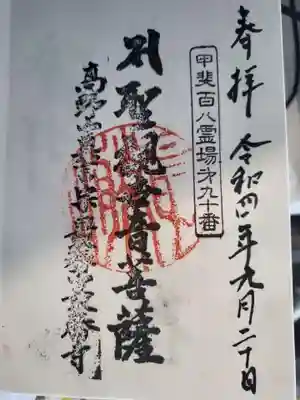 奉拝 令和四年九月二十日
甲斐百八霊場第九十番
聖観世音菩薩
高野山真言宗 最勝寺